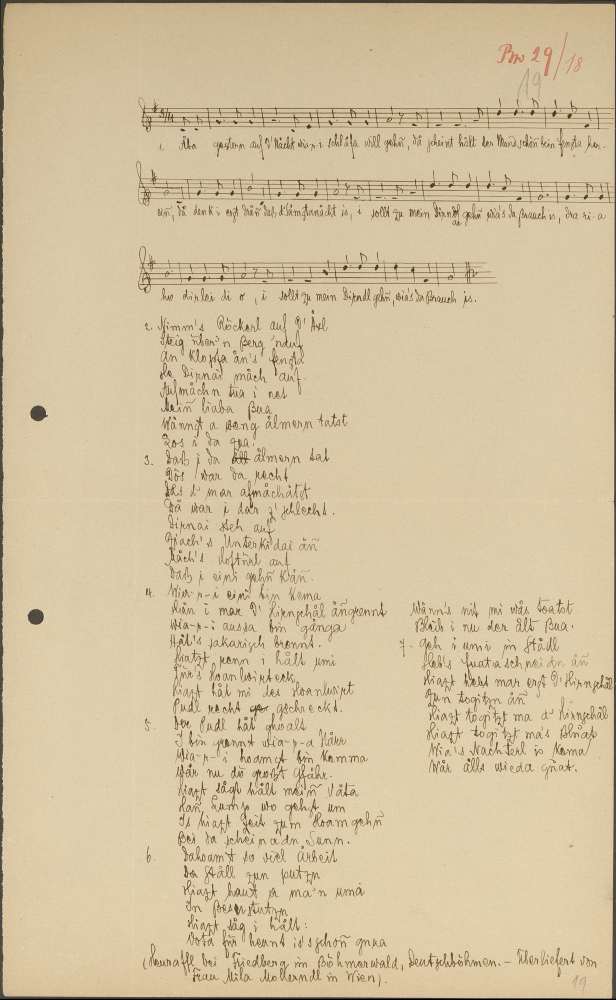 Bm 29/18
19
gestern auf d' Nächt wia-r-i schlåfa will gehñ, då scheint hålt der Mond schöñ bein fenzta her-
eiñ, då denk i erst dråñ daß d' Såmstanåcht is, i sollt zu mein Dirndl gehñ wia's da Brauch is, dra ri-a
ho dirlei di o, i sollt zu mein Dirndl gehñ, wia's da Brauch is.
2. Nimm's Röckerl auf d' Åxl
Steig über'n Berg 'nauf
An Klopfa ån's fenzta
He Dirnai måch auf.
Aufmåchn tua i net
Meiñ liaba Bua
Wånnst a weng ålmern tatst
Los i da zua.
3. Daß i da ålmern tat
Dös war da recht
Dås d' mar afmåchåtst
Då war i dar z' schlecht.
Dirnai steh auf
Måch's auf
Daß i eini gehñ kåñ.
4. Wia-r-i eini bin kema
Hån i mar d' Hirnschål åñgrennt
Wia-r-i aussa bin gånga
Håt's sakarisch brennt.
Hiatzt renn i hålt umi
Für's Hoanlwirtseck
Hiazt håt mi des Hoanlwirt
Pudl recht gschreckt.
5. Der Pudl håt ghoalt
I bin grennt wia-r-a Nårr
Wia-r-i hoamst bin kemma
Wår nu dö größt Gfåhr.
Hiazt sågt hålt meiñ Våta
Hañ, Lump wo gehst um
Is hiazt Zeit zum Hoamgehñ
Bei da scheinadn Sunn.
6. Dahoamt so viel Årbeit
Da Ståll zun putzn
Hiazt haut a ma'n umå
Hiazt såg i hålt:
Våtå für heunt is's schoñ gnua
Wånn's nit mi wås toatst
Bleib i nu der ålt Bua.
7. Geh i umi in Stådl
Heb's Fuataschneidn åñ
Hiazt hebt mar erst d' Hirnschål
Zun togitzn åñ
Hiazt togitzt ma d' Hirnschål
Hiazt togitzt mas
Wia's Nachterl is kema
Wår ålls wieda guat.
(Heuraffl bei Friedberg im Böhmerwald, Deutschböhmen. – Überliefert von
Frau Mila Mollerndl in Wien).
19